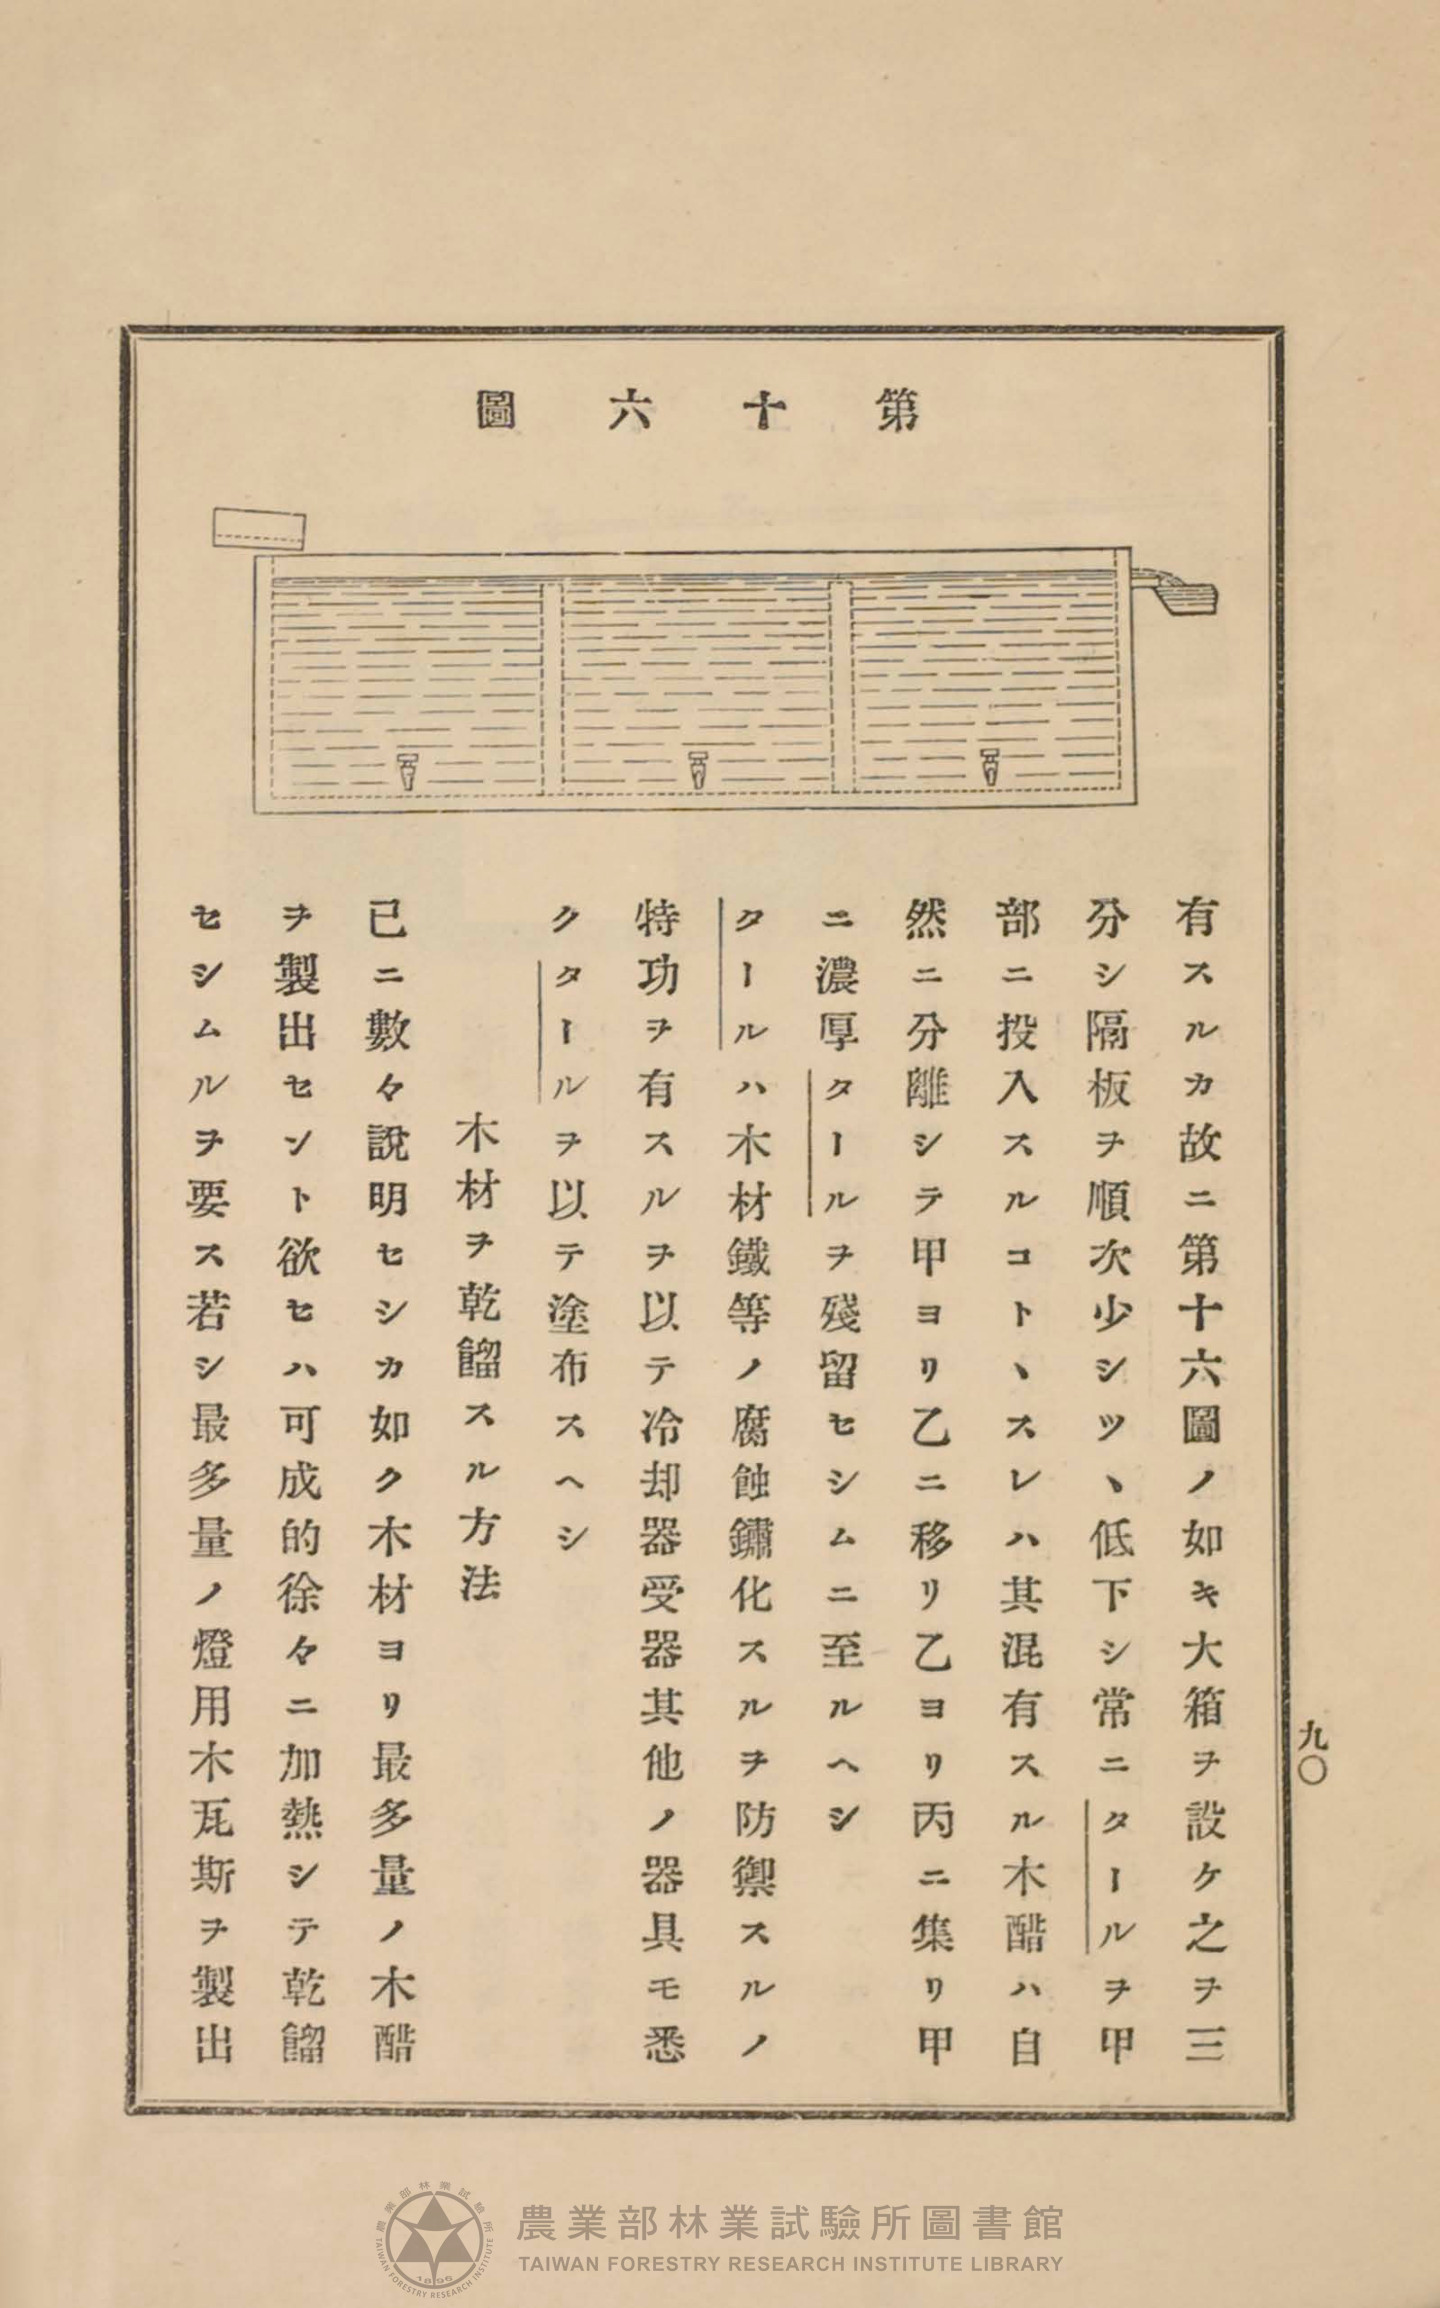 第十六圖
有スルカ故ニ第十六圖ノ如キ大箱ヲ設ケ之ヲ三
分シ隔板ヲ順次少シツヽ低下シ常ニタールヲ甲
部ニ投入スルコトヽスレハ其混有スル木醋ハ自
然ニ分離シテ甲ヨリ乙ニ移リ乙ヨリ丙ニ集リ甲
ニ濃厚タールヲ殘留セシムニ至ルヘシ
タールハ木材鐵等ノ腐蝕鏽化スルヲ防禦スルノ
特功ヲ有スルヲ以テ冷却器受器其他ノ器具モ悉
クタールヲ以テ塗布スヘシ
木材ヲ乾餾スル方法
已ニ數々說明セシカ如ク木材ヨリ最多量ノ木醋
ヲ製出セント欲セハ可成的徐々ニ加熱シテ乾餾
セシムルヲ要ス若シ最多量ノ燈用木瓦斯ヲ製出
九〇
農業部林業試驗所圖書館
TAIWAN FORESTRY RESEARCH INSTITUTE LIBRARY
農業部林業試驗所
TAIWAN FORESTRY RESEARCH INSTITUTE
1896